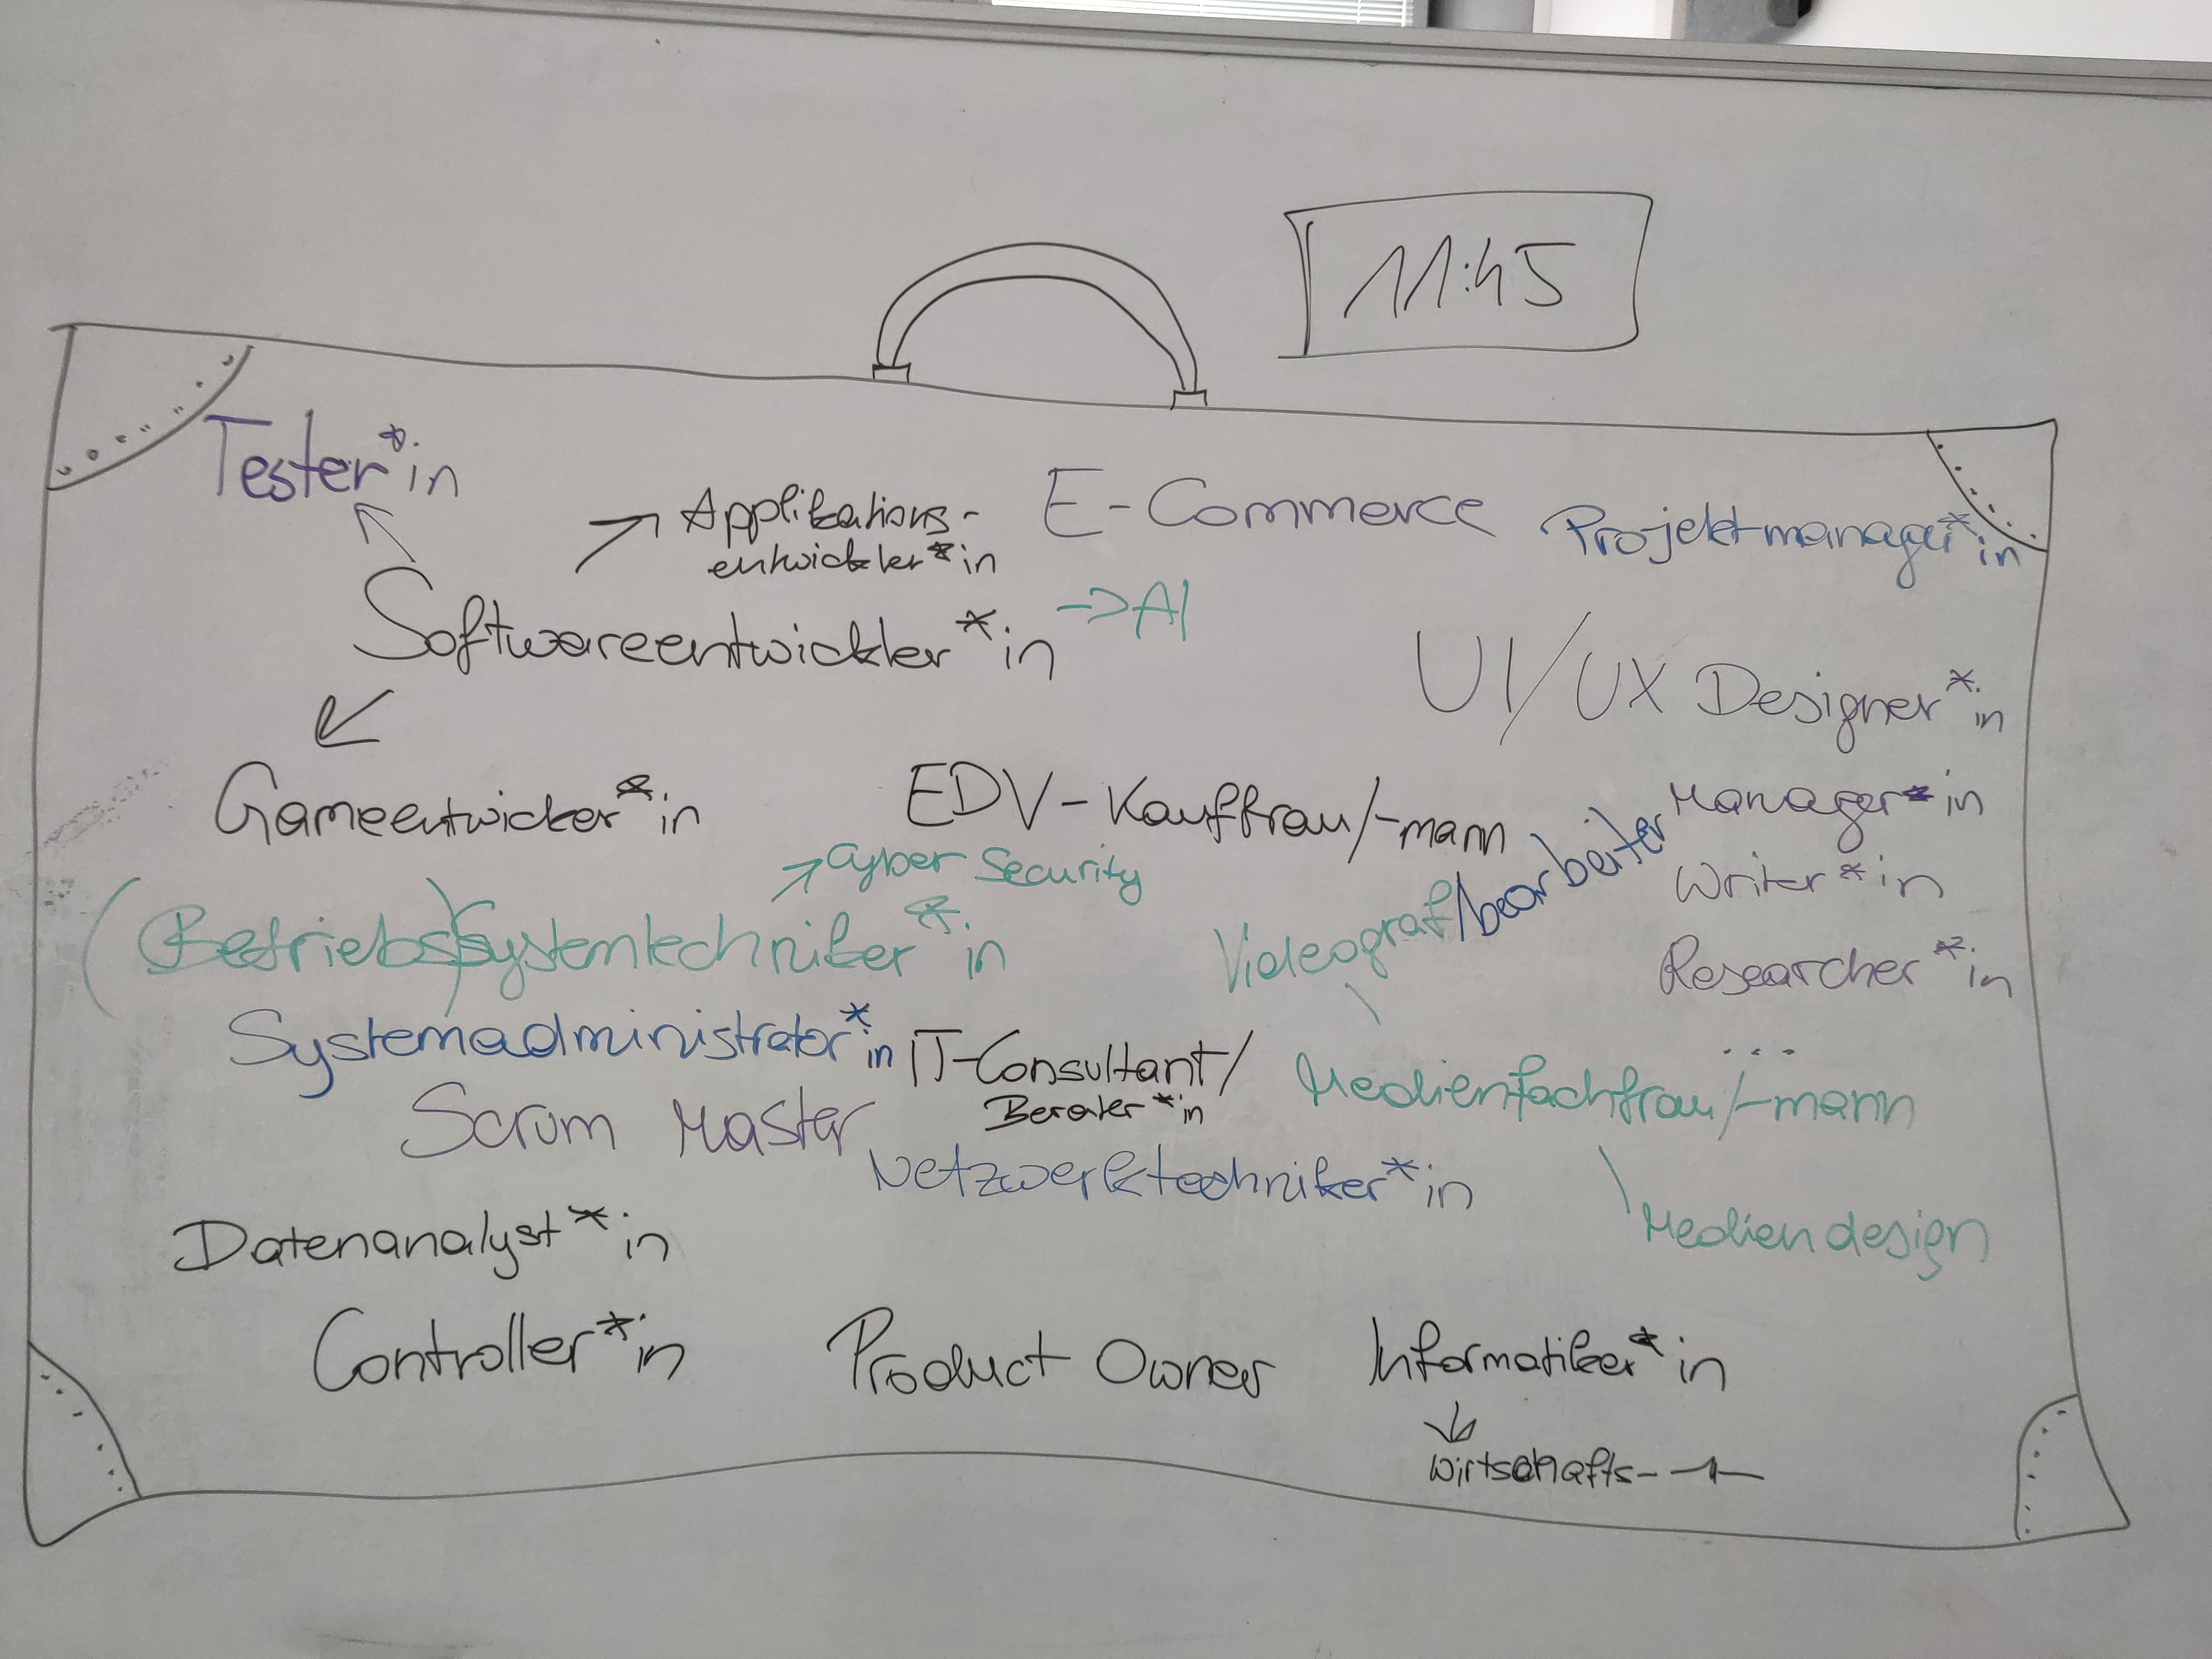 11:45
Tester*in
Applikations-
entwickler*in
E-Commerce
Projektmanager*in
Softwareentwickler*in
->AI
UI/UX Designer*in
Gameentwicker*in
EDV-Kauffrau/-mann
Manager*in
Cyber Security
Writer*in
(Betriebs)systemtechniker*in
Videograf/bearbeiter
Researcher*in
...
Systemadministrator*in
IT-Consultant/
Berater*in
Medienfachfrau/-mann
Scrum Master
Netzwerktechniker*in
Datenanalyst*in
Mediendesign
Controller*in
Product Owner
Informatiker*in
Wirtschafts-